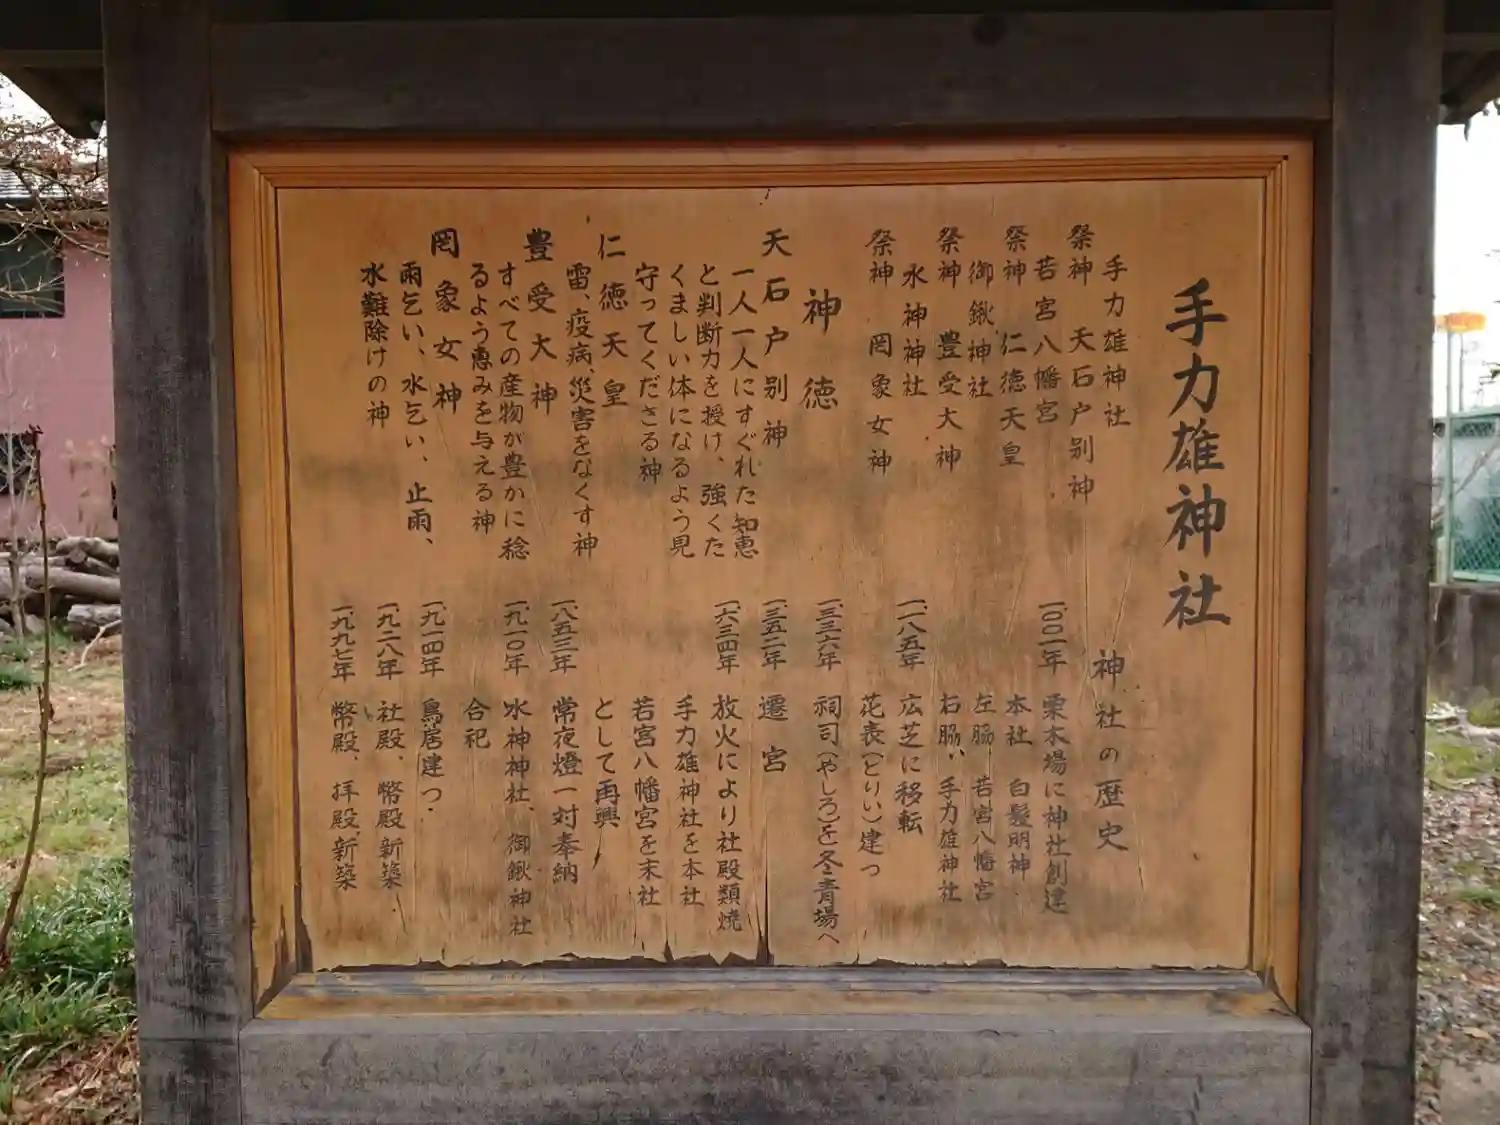 手力雄神社
手力雄神社
祭神　天石戸別神
若宮八幡宮
祭神　仁徳天皇
御鍬神社
祭神　豊受大神
水神神社
祭神　罔象女神
神徳
天石戸別神
一人一人にすぐれた知恵
と判断力を授け、強くた
くましい体になるよう見
守ってくださる神
仁徳天皇
雷、疫病、災害をなくす神
豊受大神
すべての産物が豊かに稔
るよう恵みを与える神
罔象女神
雨乞い、水乞い、止雨、
水難除けの神
神社の歴史
一、〇〇一年　栗木場に神社創建
本社　白髪明神
左脇　若宮八幡宮
右脇、手力雄神社
一、一八五年　広芝に移転
花表(とりい)建つ
一、三三六年　祠司(やしろ)を冬青場へ
一、三五二年　遷宮
一、六三四年　放火により社殿類焼
手力雄神社を本社
若宮八幡宮を末社
として再興
一、八五三年　常夜燈一対奉納
一、九一〇年　水神神社、御鍬神社
合祀
一、九一四年　鳥居建つ
一、九二八年　社殿、幣殿新築
一、九九七年　幣殿、拝殿新築